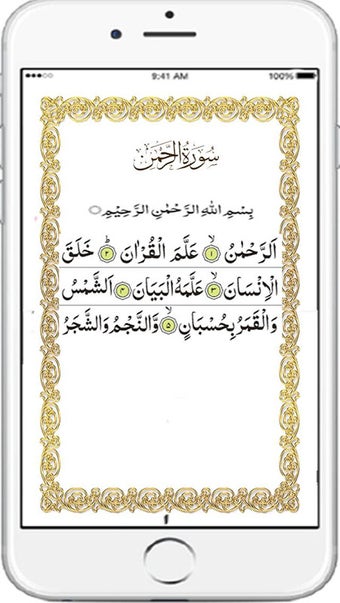 9:41 AM
100%
سُورَةُ الرَّحْمٰن
بِسْمِ اللّٰهِ الرَّحْمٰنِ الرَّحِيْمِ
اَلرَّحْمٰنُ ۙ﴿۱﴾ عَلَّمَ الْقُرْاٰنَ ؕ﴿۲﴾ خَلَقَ
الْاِنْسَانَ ۙ﴿۳﴾ عَلَّمَهُ الْبَيَانَ ﴿۴﴾ اَلشَّمْسُ
وَالْقَمَرُ بِحُسْبَانٍ ۙ﴿۵﴾ وَّالنَّجْمُ وَالشَّجَرُ